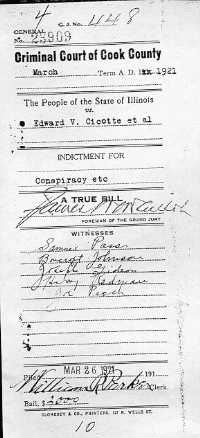 4
G.J. No. 448
GENERAL
No. 23909
Criminal Court of Cook County
March Term A. D. 1921
The People of the State of Illinois
vs.
Edward V. Cicotte et al
INDICTMENT FOR
Conspiracy etc
A TRUE BILL
FOREMAN OF THE GRAND JURY
WITNESSES
Samuel Pass
Bancroft Johnson
Joseph Gedeon
Henry Redmon
Filed MAR 26 1921 191
William R. Parker Clerk.
Bail, $ 3000
CLOHESEY & CO., PRINTERS, 117 N. WELLS ST.
10